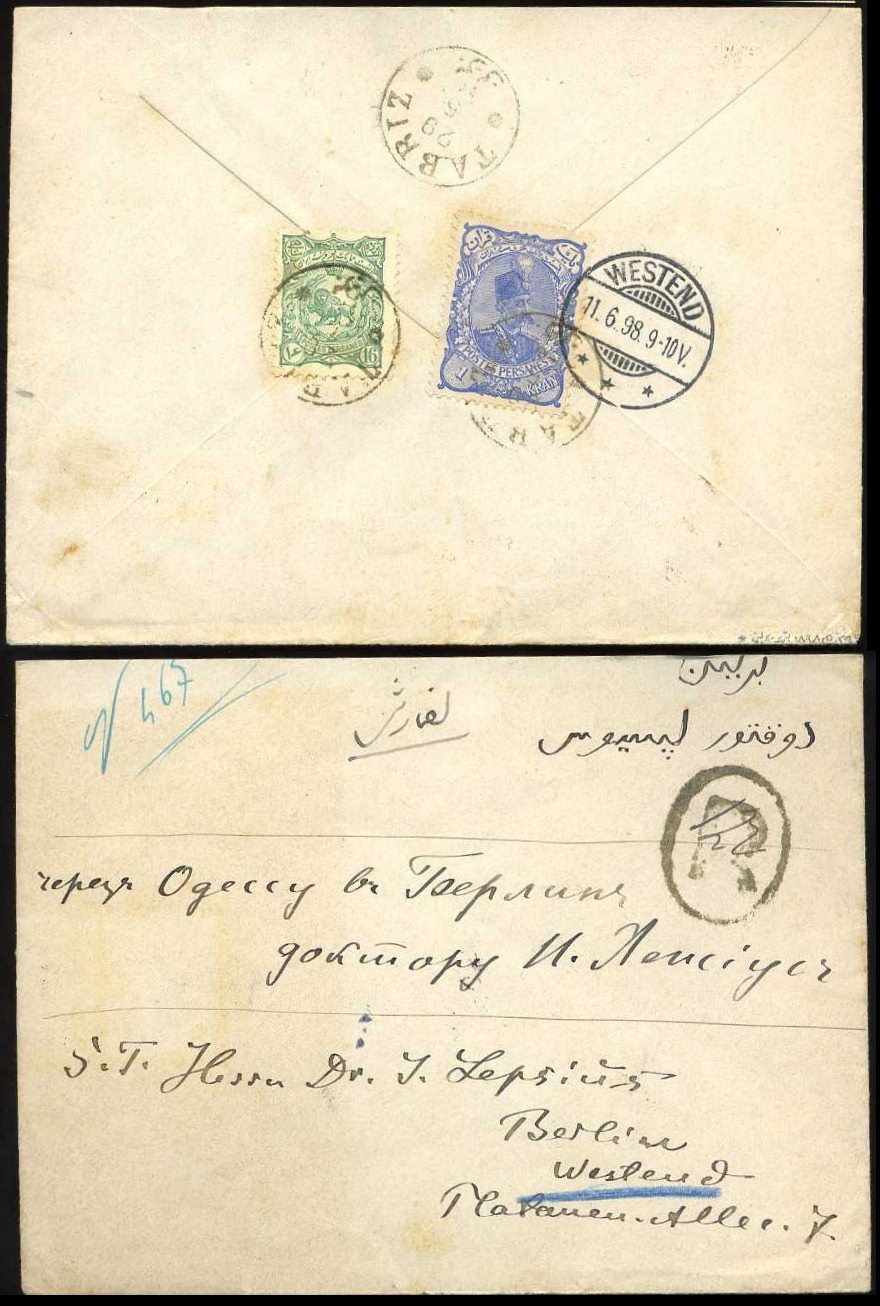 TABRIZ
29
16
یک قران
POSTES PERSANES
1 KRAN
TAB
WESTEND
11.6.98.9-10V.
TABR
№ 467
سفارش
برلین
دوقتور لپسیوس
R
черезъ Одессу въ Берлинъ
доктору И. Лепсіусъ
S.T. Herrn Dr. J. Lepsius
Berlin
Westend
Platanen-Allee. 7.